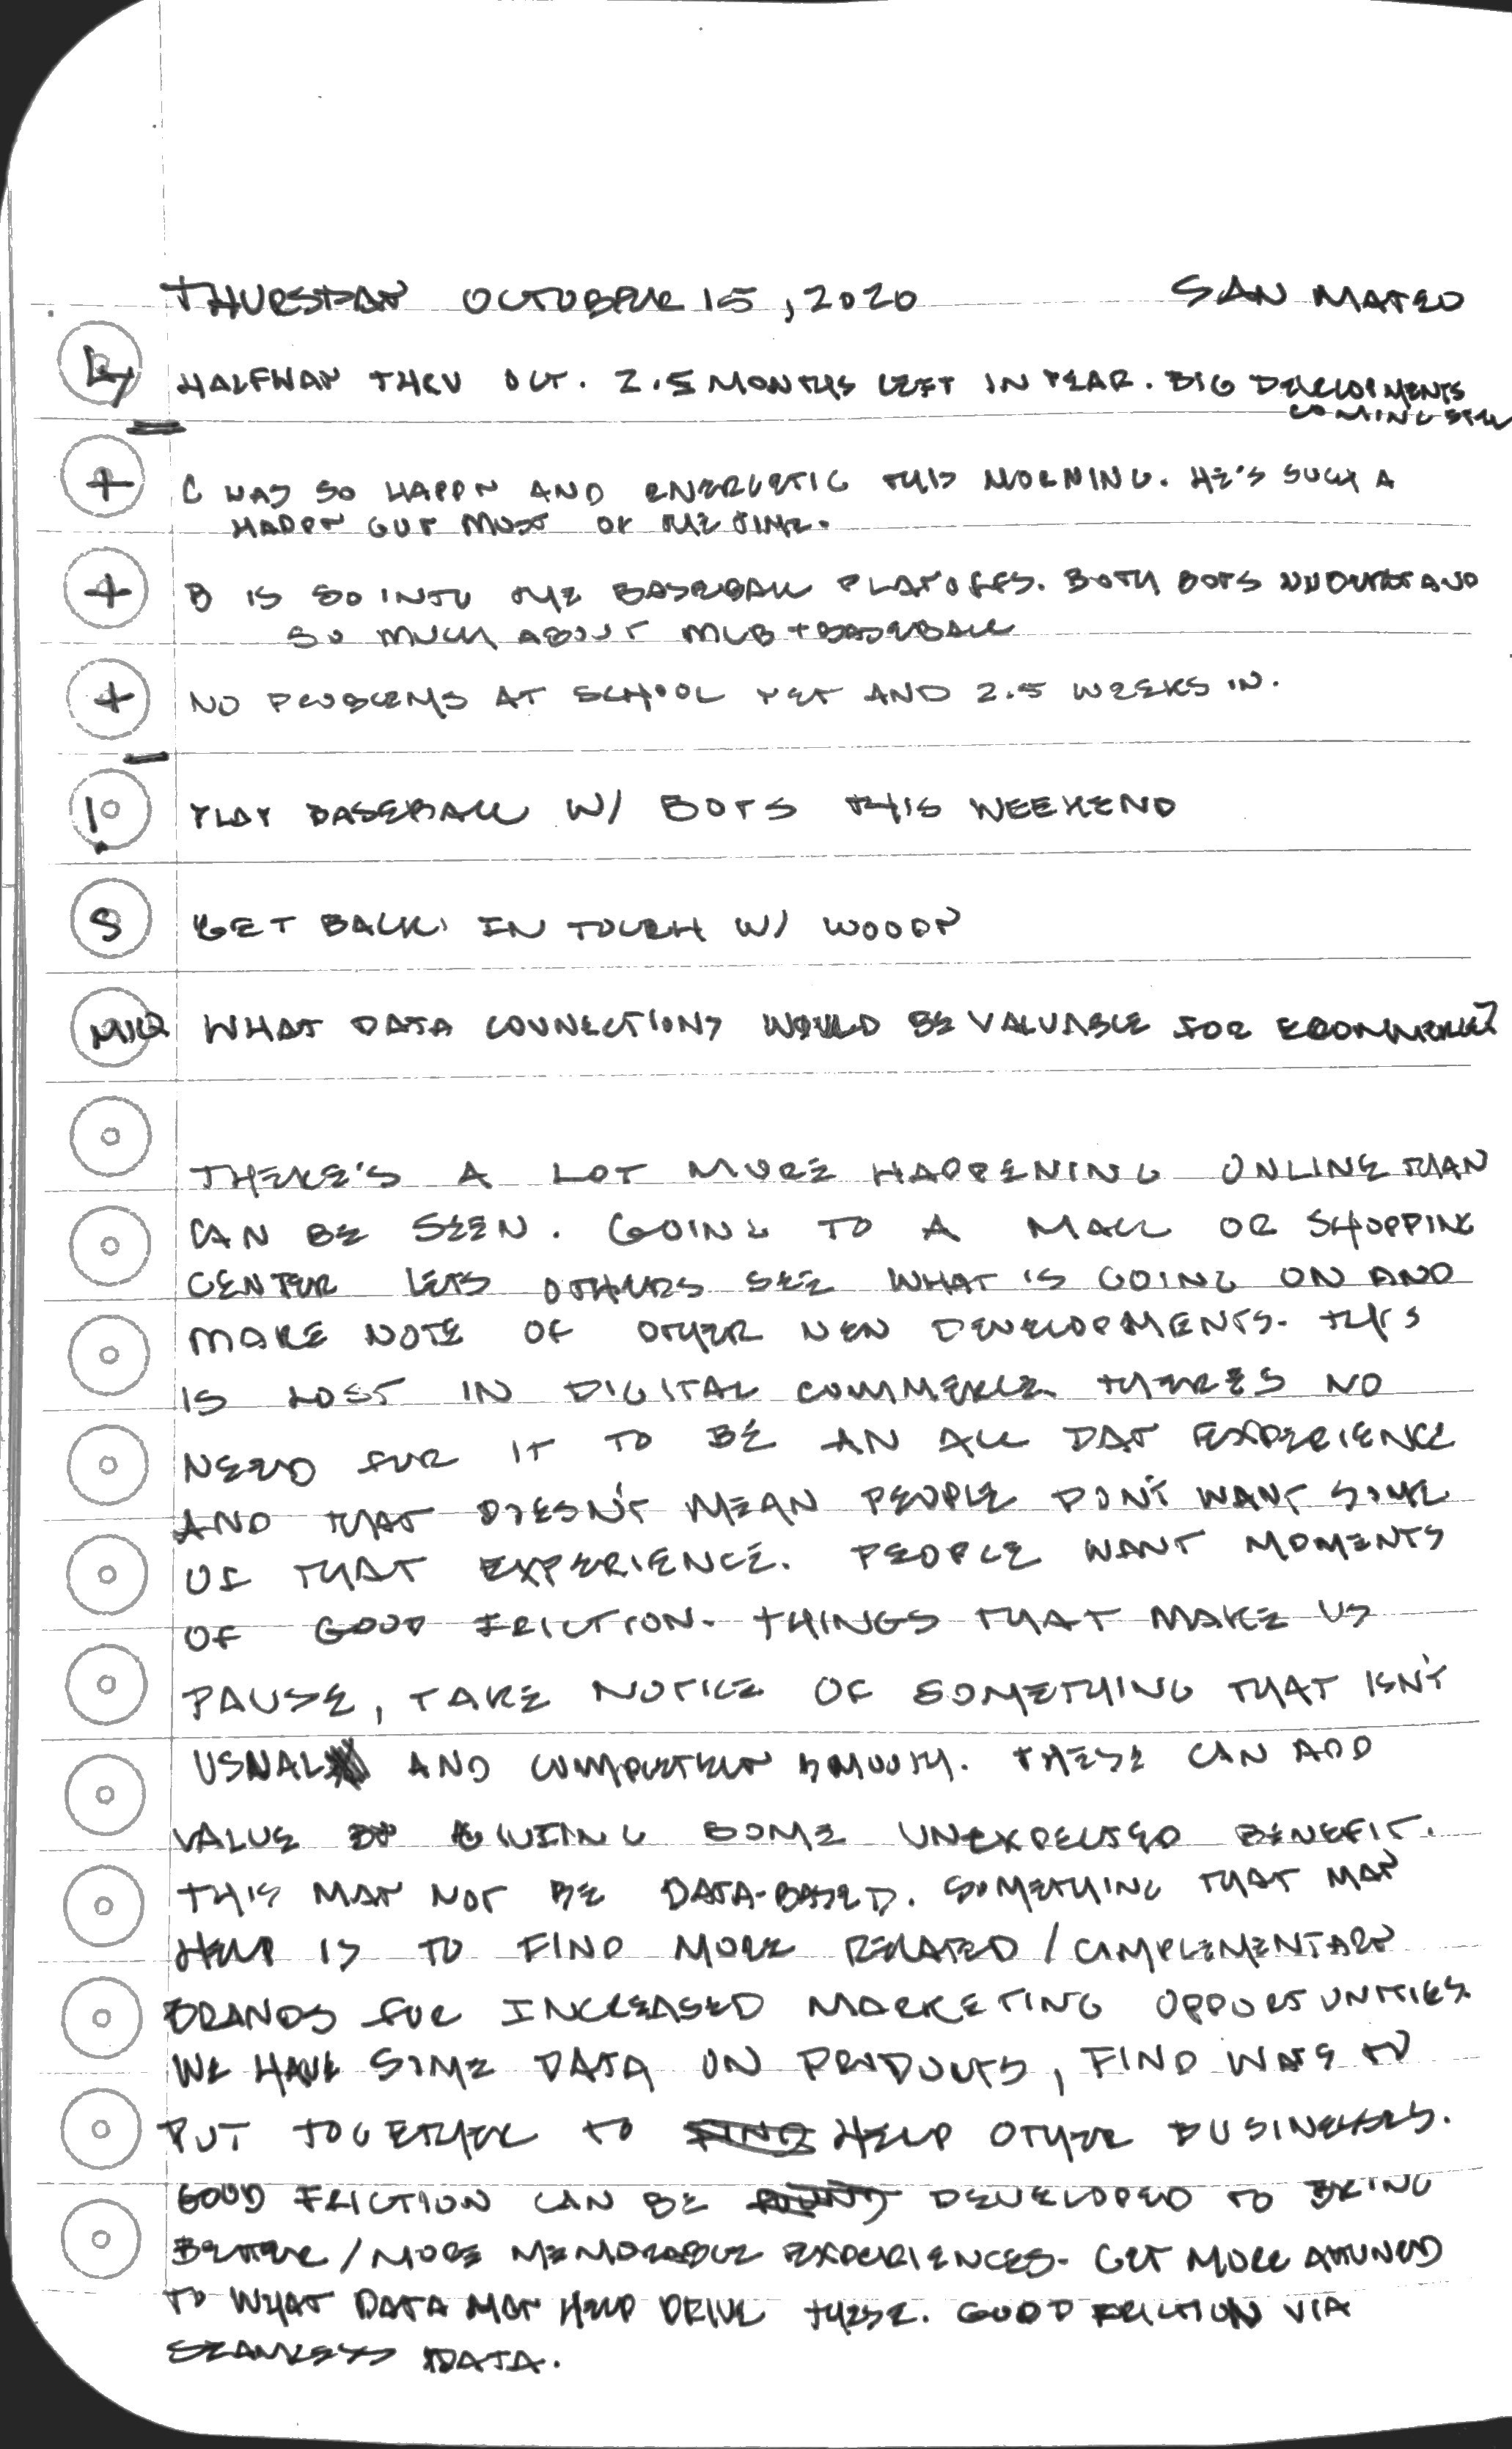 THURSDAY OCTOBER 15, 2020 SAN MATEO
HALFWAY THRU OCT. 2.5 MONTHS LEFT IN YEAR. BIG DEVELOPMENTS
COMING
+ C WAS SO HAPPY AND ENERGETIC THIS MORNING. HE'S SUCH A
HAPPY GUY MOST OF THE TIME.
+ B IS SO INTO THE BASEBALL PLAYOFFS. BOTH BOYS UNDERSTAND
SO MUCH ABOUT MLB + BASEBALL
+ NO PROBLEMS AT SCHOOL YET AND 2.5 WEEKS IN.
! PLAY BASEBALL W/ BOYS THIS WEEKEND
S GET BACK IN TOUCH W/ WOODY
MIQ WHAT DATA CONNECTIONS WOULD BE VALUABLE FOR ECOMMERCE?
THERE'S A LOT MORE HAPPENING ONLINE THAN
CAN BE SEEN. GOING TO A MALL OR SHOPPING
CENTER LETS OTHERS SEE WHAT IS GOING ON AND
MAKE NOTE OF OTHER NEW DEVELOPMENTS. THIS
IS LOST IN DIGITAL COMMERCE. THERE'S NO
NEED FOR IT TO BE AN ALL DAY EXPERIENCE
AND THAT DOESN'T MEAN PEOPLE DON'T WANT SOME
OF THAT EXPERIENCE. PEOPLE WANT MOMENTS
OF GOOD FRICTION. THINGS THAT MAKE US
PAUSE, TAKE NOTICE OF SOMETHING THAT ISN'T
USUAL AND COMPLETELY SMOOTH. THESE CAN ADD
VALUE BY GIVING SOME UNEXPECTED BENEFIT.
THIS MAY NOT BE DATA-BASED. SOMETHING THAT MAY
HELP IS TO FIND MORE RELATED / COMPLEMENTARY
BRANDS FOR INCREASED MARKETING OPPORTUNITIES.
WE HAVE SOME DATA ON PRODUCTS, FIND WAYS TO
PUT TOGETHER TO FIND HELP OTHER BUSINESSES.
GOOD FRICTION CAN BE DEVELOPED TO BRING
BETTER / MORE MEMORABLE EXPERIENCES. GET MORE ATTUNED
TO WHAT DATA MAY HELP DRIVE THESE. GOOD FRICTION VIA
SEAMLESS DATA.